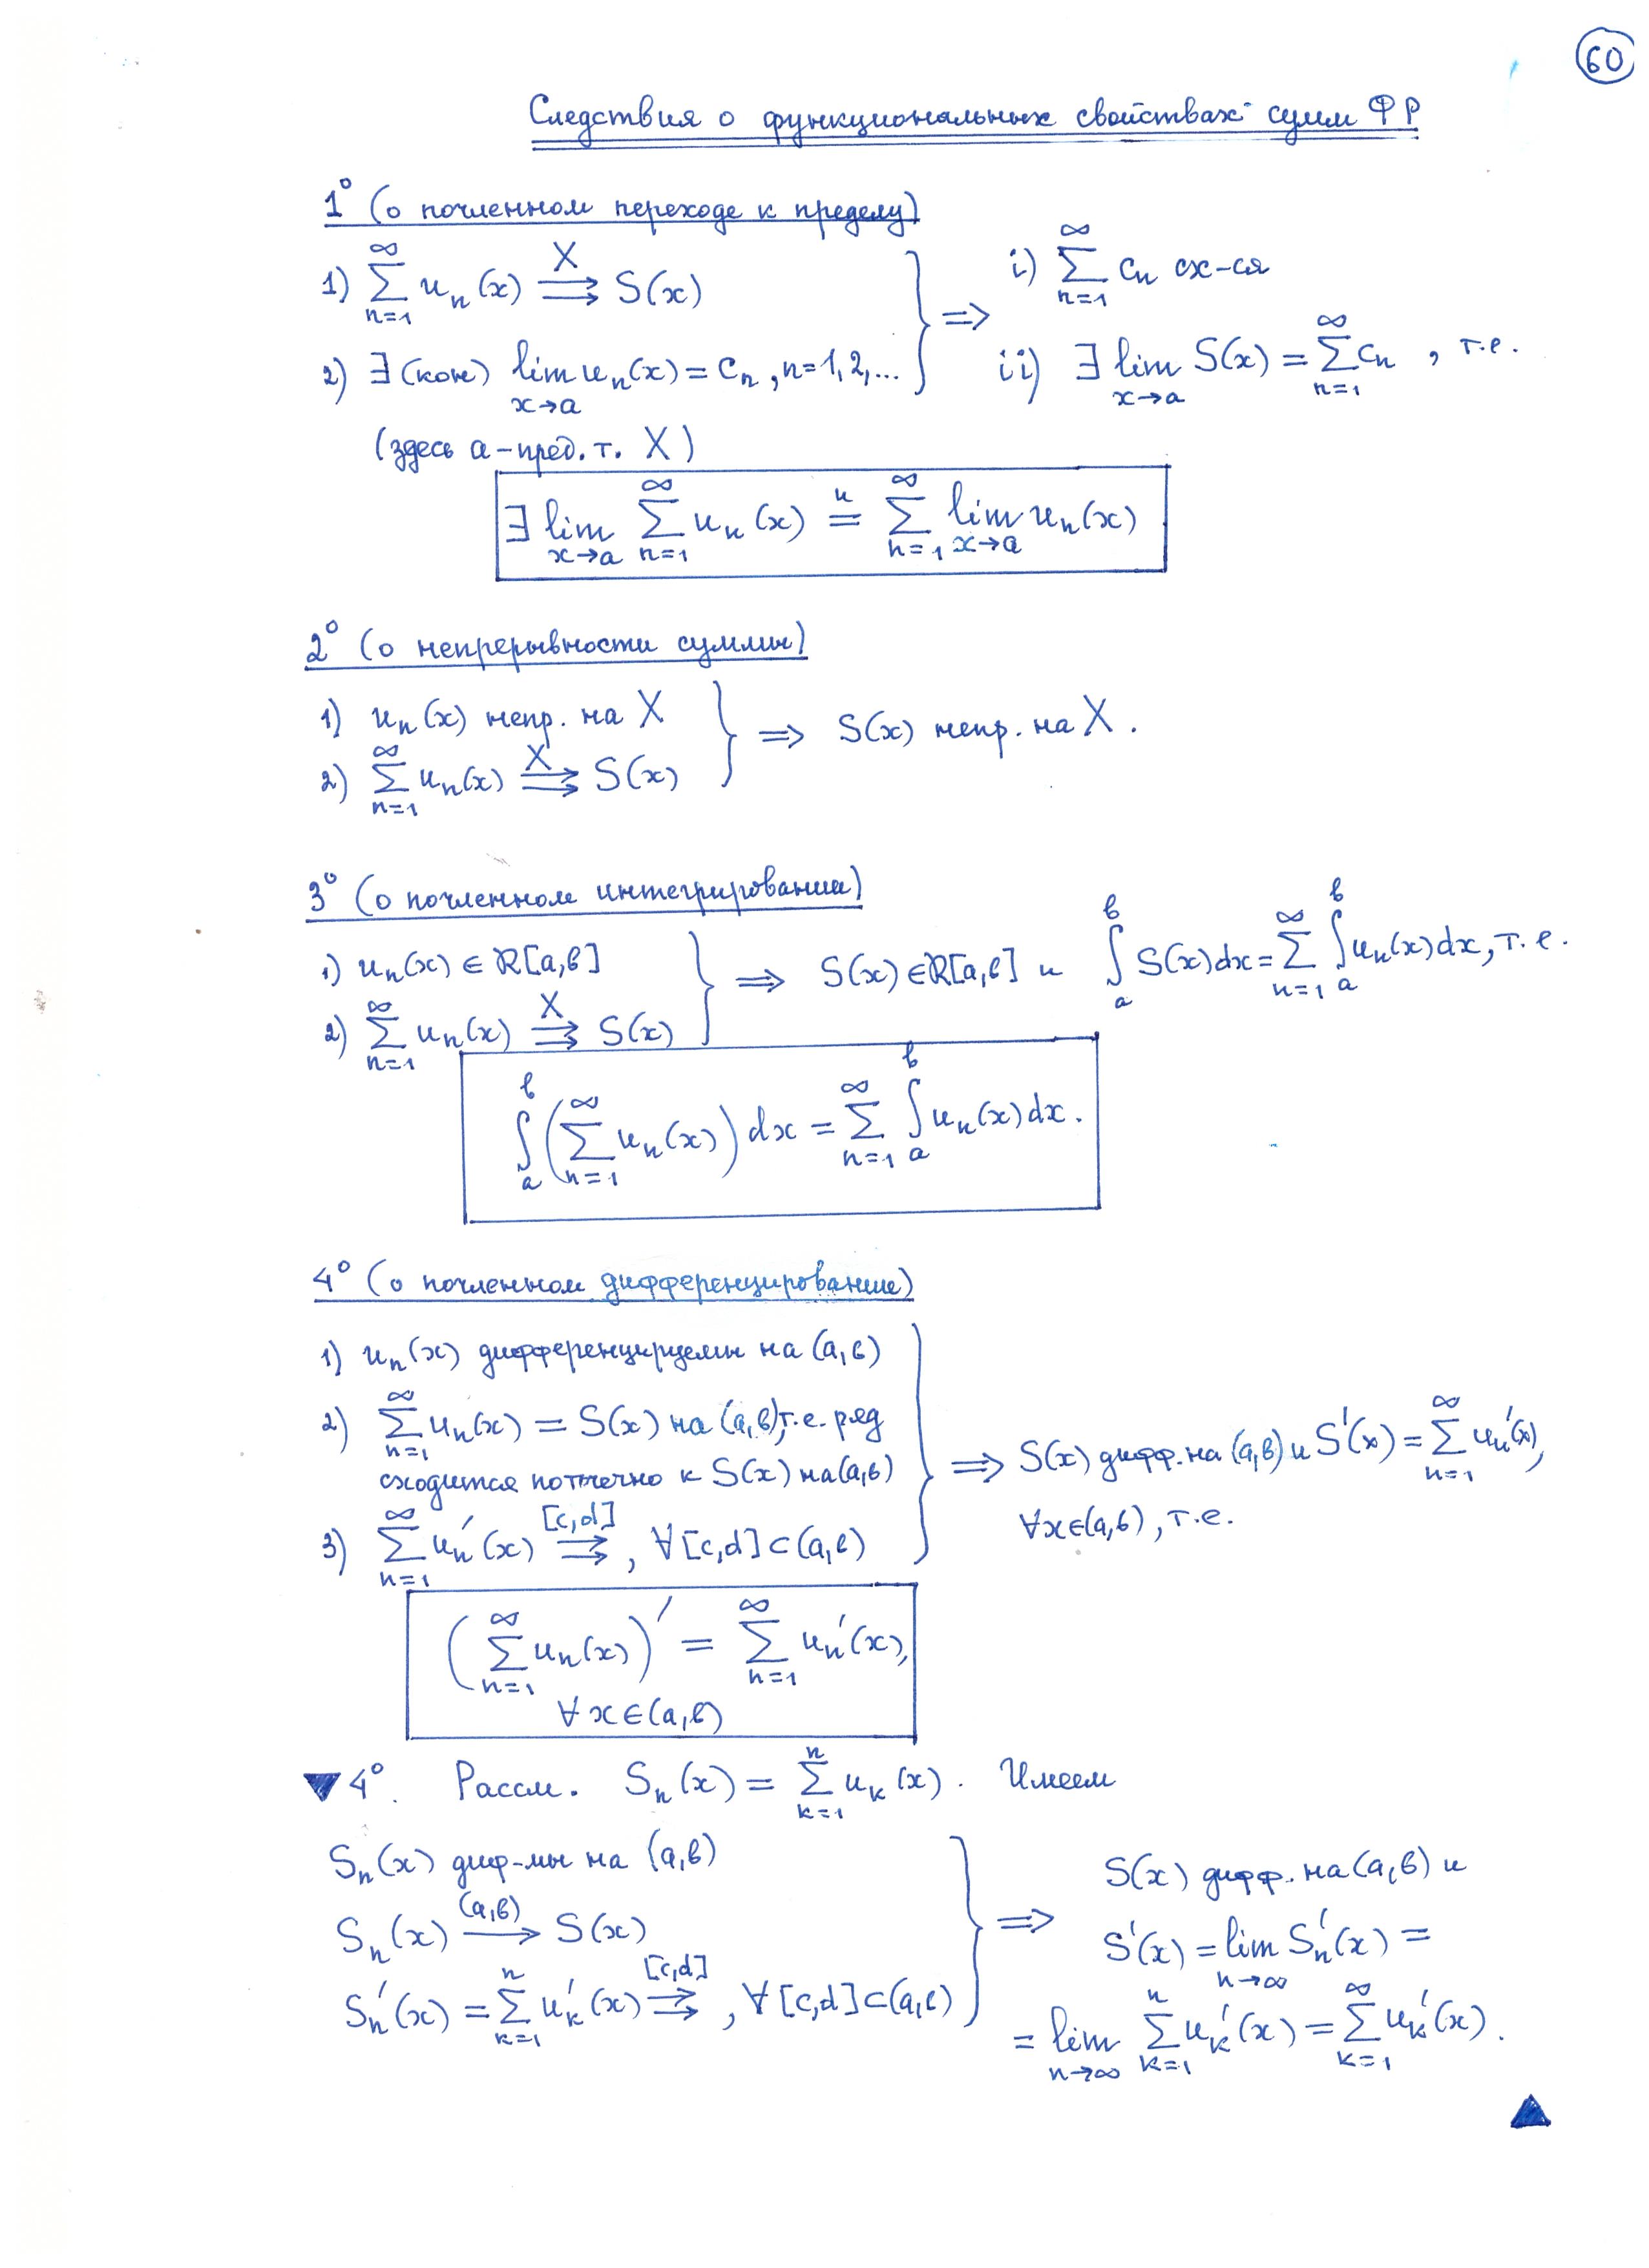 60
Следствия о функциональных свойствах сумм ФР
1° (о почленном переходе к пределу)
1) \sum_{n=1}^{∞} u_n(x) \overset{X}{⇉} S(x)
2) ∃(кон) \lim_{x→a} u_n(x) = c_n, n=1,2,...
(здесь a - пред. т. X)
} ⟹ i) \sum_{n=1}^{∞} c_n сх-ся
ii) ∃ \lim_{x→a} S(x) = \sum_{n=1}^{∞} c_n, т.е.
∃ \lim_{x→a} \sum_{n=1}^{∞} u_n(x) \overset{и}{=} \sum_{n=1}^{∞} \lim_{x→a} u_n(x)
2° (о непрерывности суммы)
1) u_n(x) непр. на X
2) \sum_{n=1}^{∞} u_n(x) \overset{X}{⇉} S(x)
} ⟹ S(x) непр. на X.
3° (о почленном интегрировании)
1) u_n(x) ∈ R[a,b]
2) \sum_{n=1}^{∞} u_n(x) \overset{X}{⇉} S(x)
} ⟹ S(x) ∈ R[a,b] и \int_a^b S(x)dx = \sum_{n=1}^{∞} \int_a^b u_n(x)dx, т.е.
\int_a^b (\sum_{n=1}^{∞} u_n(x)) dx = \sum_{n=1}^{∞} \int_a^b u_n(x)dx.
4° (о почленном дифференцировании)
1) u_n(x) дифференцируемы на (a,b)
2) \sum_{n=1}^{∞} u_n(x) = S(x) на (a,b), т.е. ряд
сходится поточечно к S(x) на (a,b)
3) \sum_{n=1}^{∞} u_n'(x) \overset{[c,d]}{⇉}, ∀[c,d]⊂(a,b)
} ⟹ S(x) дифф. на (a,b) и S'(x) = \sum_{n=1}^{∞} u_n'(x),
∀x∈(a,b), т.е.
(\sum_{n=1}^{∞} u_n(x))' = \sum_{n=1}^{∞} u_n'(x),
∀x∈(a,b)
▼4°. Рассм. S_n(x) = \sum_{k=1}^{n} u_k(x). Имеем
S_n(x) диф-мы на (a,b)
S_n(x) \overset{(a,b)}{⟶} S(x)
S_n'(x) = \sum_{k=1}^{n} u_k'(x) \overset{[c,d]}{⇉}, ∀[c,d]⊂(a,b)
} ⟹ S(x) дифф. на (a,b) и
S'(x) = \lim_{n→∞} S_n'(x) =
= \lim_{n→∞} \sum_{k=1}^{n} u_k'(x) = \sum_{k=1}^{∞} u_k'(x).
▲